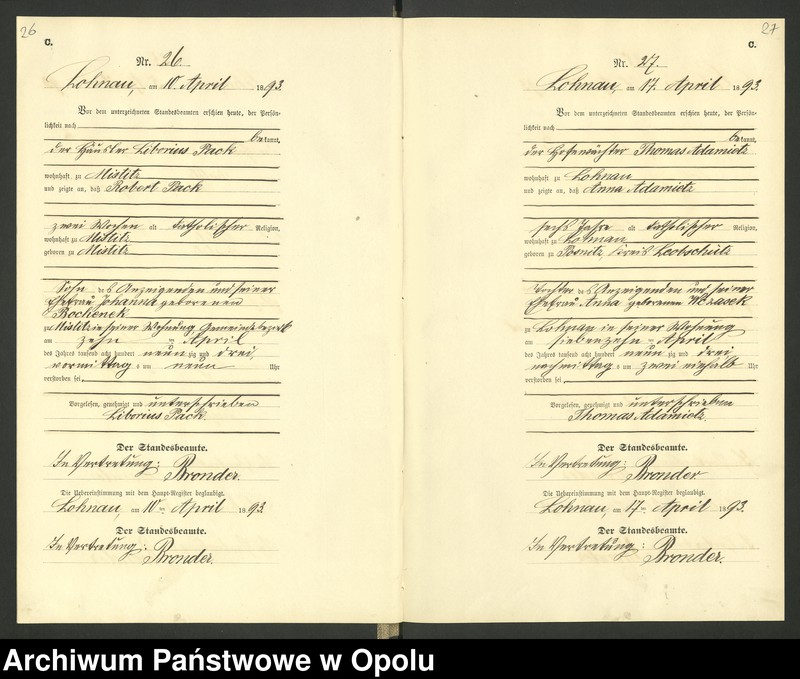 26
C.
Nr. 26
Lohnau, am 10. April 1893.
Vor dem unterzeichneten Standesbeamten erschien heute, der Persön-
lichkeit nach
bekannt,
der Häusler Liborius Pack
wohnhaft zu Mistitz
und zeigte an, daß Robert Pack
zwei Wochen alt katholischer Religion,
wohnhaft zu Mistitz
geboren zu Mistitz
Sohn des Anzeigenden und seiner
Ehefrau Johanna geborenen
Bochenek
zu Mistitz in seiner Wohnung, Gemeindebezirk
am zehn ten April
des Jahres tausend acht hundert neunzig und drei
vormittags um neun Uhr
verstorben sei.
Vorgelesen, genehmigt und unterschrieben
Liborius Pack.
Der Standesbeamte.
In Vertretung: Bronder.
Die Uebereinstimmung mit dem Haupt-Register beglaubigt.
Lohnau, am 10ten April 1893.
Der Standesbeamte.
In Vertretung: Bronder.
27
C.
Nr. 27.
Lohnau, am 17. April 1893.
Vor dem unterzeichneten Standesbeamten erschien heute, der Persön-
lichkeit nach
bekannt,
der Hofewächter Thomas Adamietz
wohnhaft zu Lohnau
und zeigte an, daß Anna Adamietz
sechs Jahre alt katholischer Religion,
wohnhaft zu Lohnau
geboren zu Posnitz Kreis Leobschütz
Tochter des Anzeigenden und seiner
Ehefrau Anna geborenen
zu Lohnau in seiner Wohnung
am siebenzehn ten April
des Jahres tausend acht hundert neunzig und drei
nachmittags um zwei einhalb Uhr
verstorben sei.
Vorgelesen, genehmigt und unterschrieben
Thomas Adamietz.
Der Standesbeamte.
In Vertretung: Bronder.
Die Uebereinstimmung mit dem Haupt-Register beglaubigt.
Lohnau, am 17ten April 1893.
Der Standesbeamte.
In Vertretung: Bronder.
Archiwum Państwowe w Opolu